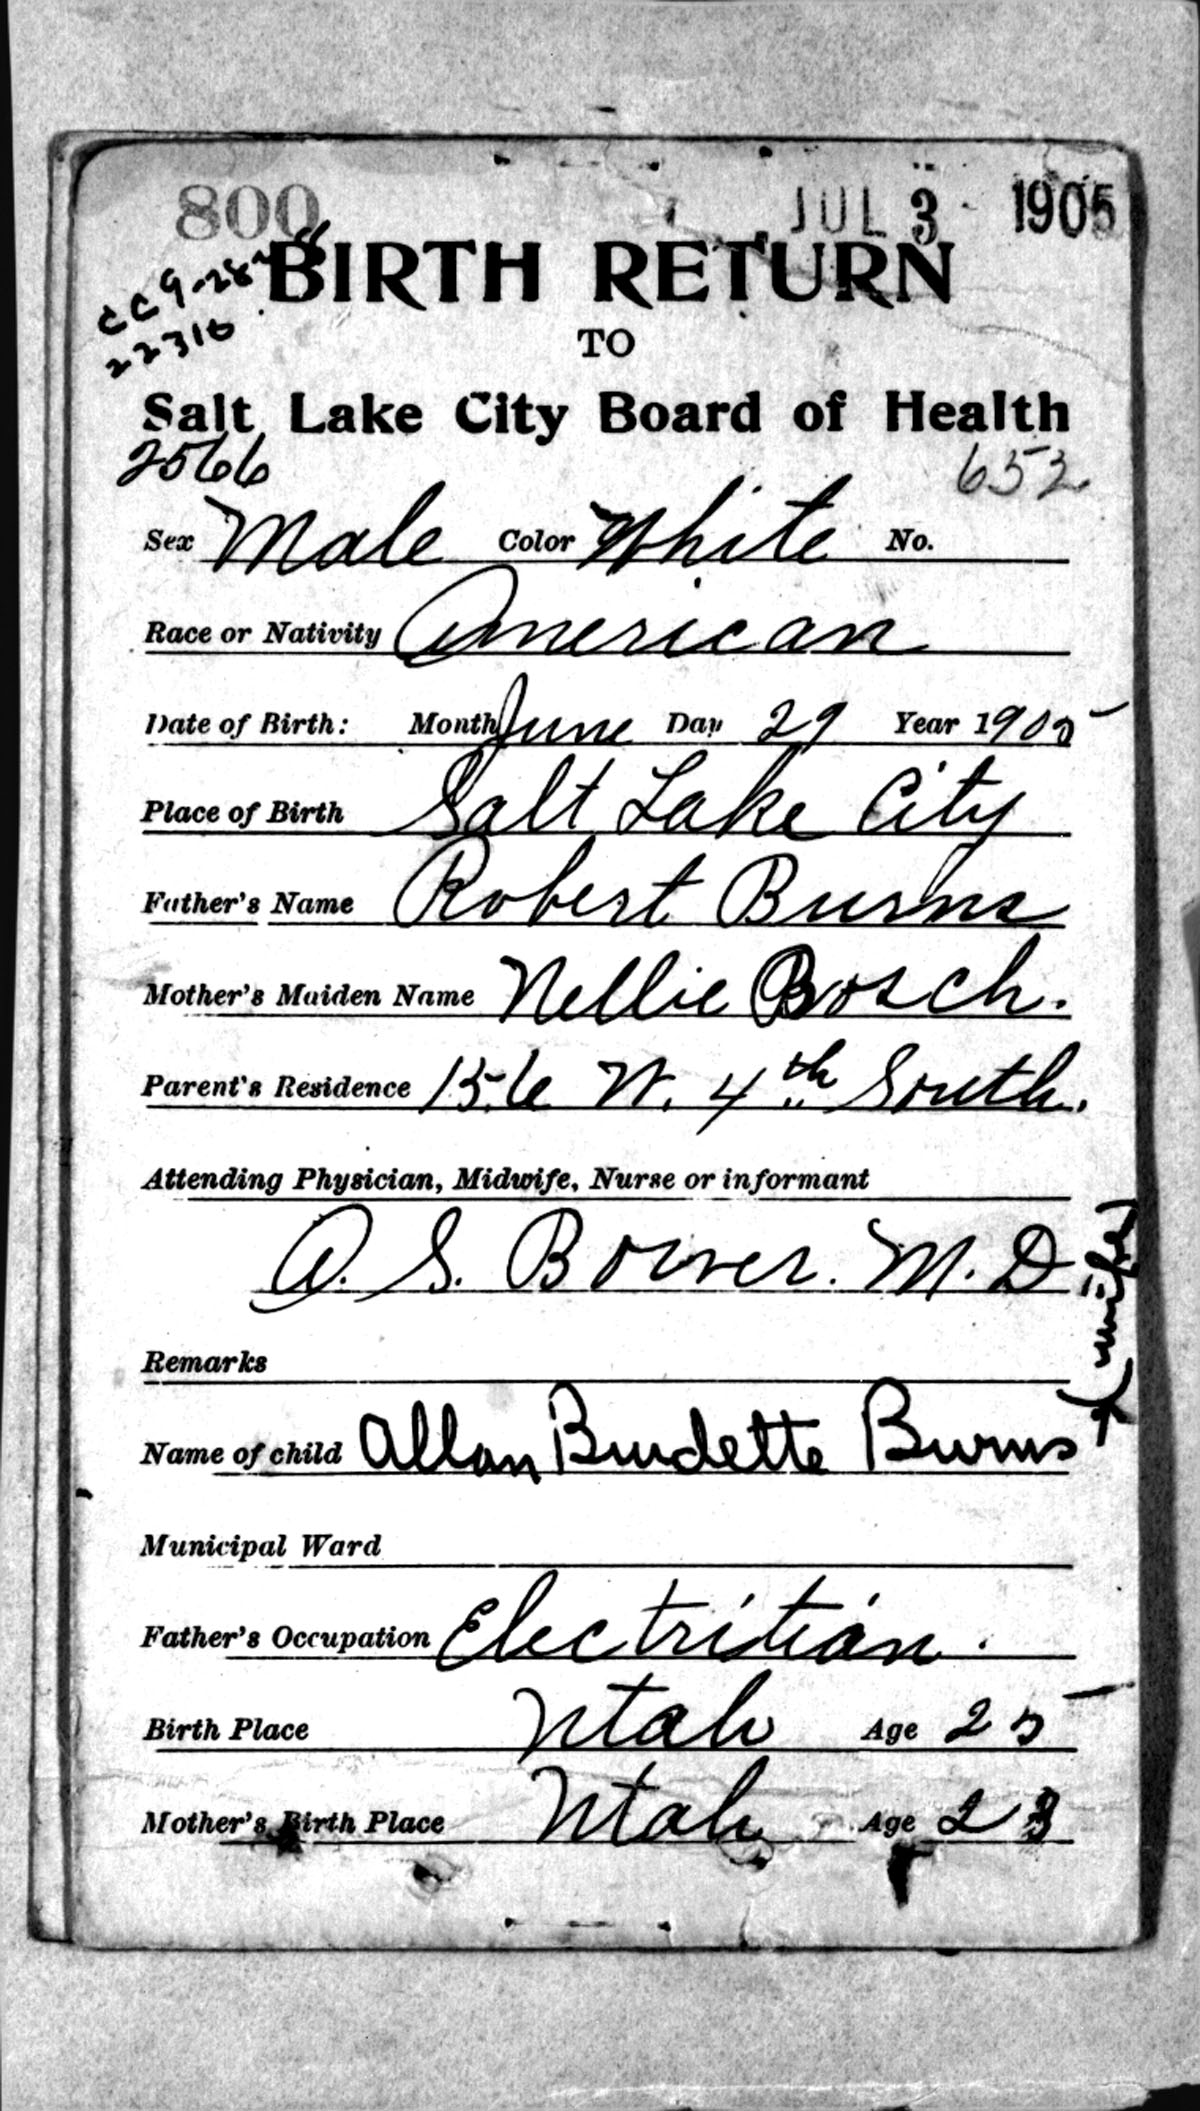 800 JUL 3 1905
CC 9-28-
22316
BIRTH RETURN
TO
Salt Lake City Board of Health
2566 652
Sex Male Color White No.
Race or Nativity American
Date of Birth: Month June Day 29 Year 1905
Place of Birth Salt Lake City
Father's Name Robert Burns
Mother's Maiden Name Nellie Bosch.
Parent's Residence 156 W. 4th South.
Attending Physician, Midwife, Nurse or informant
A. S. Bower. M. D
Remarks
Name of child Allan Burdette Burns
Municipal Ward
Father's Occupation Electritian.
Birth Place Utah Age 25
Mother's Birth Place Utah Age 23